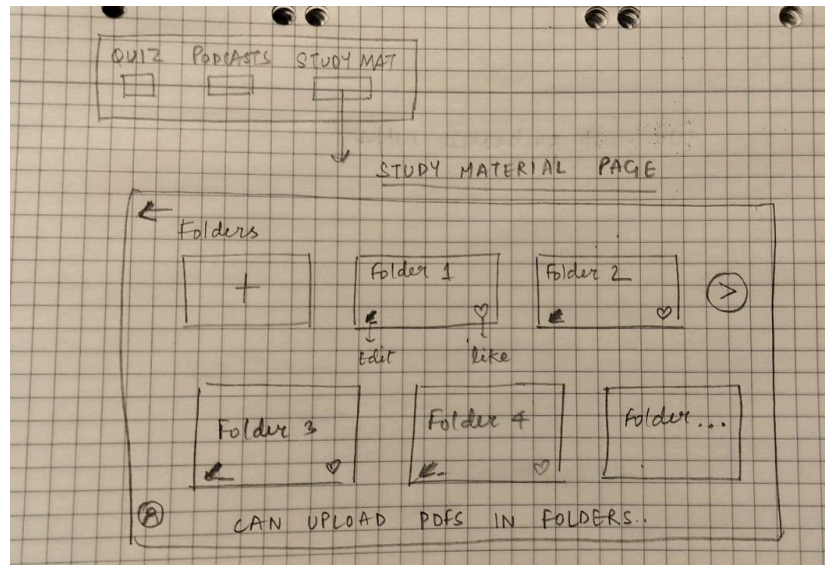 QUIZ PODCASTS STUDY MAT
STUDY MATERIAL PAGE
Folders
+ Folder 1 Folder 2 >
Edit like
Folder 3 Folder 4 Folder...
CAN UPLOAD PDFS IN FOLDERS..